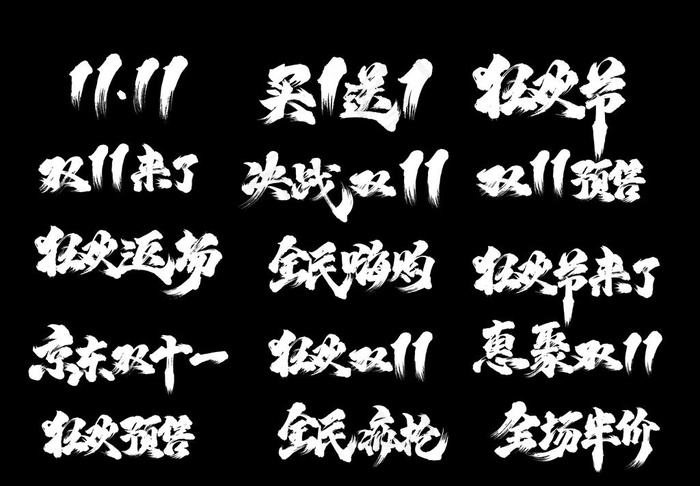 11.11
买1送1
狂欢节
双11来了
决战双11
双11预售
狂欢返场
全民嗨购
狂欢节来了
京东双十一
狂欢双11
惠聚双11
狂欢预售
全民疯抢
全场半价